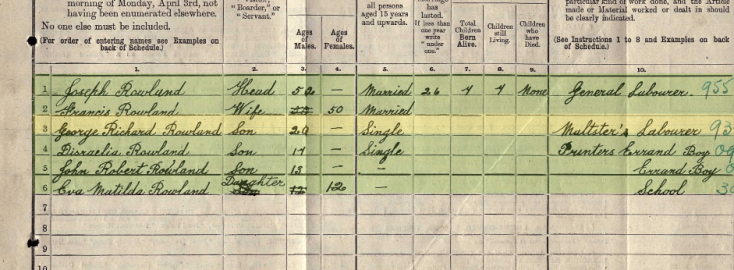 morning of Monday, April 3rd, not
having been enumerated elsewhere.
No one else must be included.
(For order of entering names see Examples on
back of Schedule.)
"Boarder," or
"Servant."
Ages
of
Males.
Ages
of
Females.
all persons
aged 15 years
and upwards.
has
lasted.
If less than
one year
write
"under
one."
Total
Children
Born
Alive.
Children
still
Living.
Children
who
have
Died.
particular kind of work done, and the Article
made or Material worked or dealt in should
be clearly indicated.
(See Instructions 1 to 8 and Examples on back
of Schedule.)
1. 2. 3. 4. 5. 6. 7. 8. 9. 10.
1 Joseph Rowland Head 52 — Married 26 4 4 None General Labourer. 955
2 Francis Rowland Wife 50 Married
3 George Richard Rowland Son 20 — Single Maltster's Labourer 93
4 Disraelia Rowland Son 17 — Single Printers Errand Boy
5 John Robert Rowland Son 13 — — Errand Boy
6 Eva Matilda Rowland Daughter 12 — School
7
8
9
10